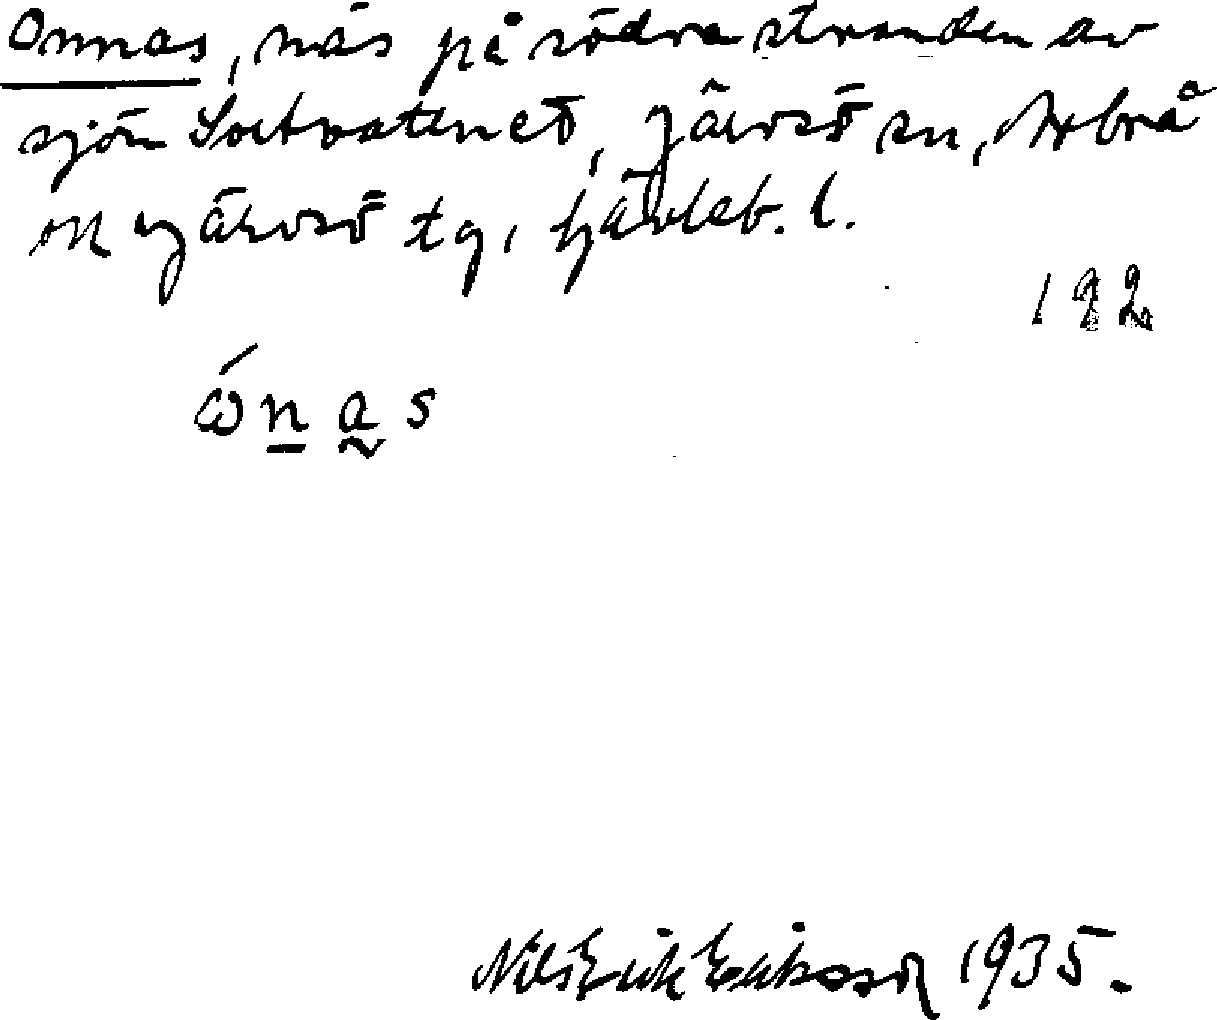 Onnäs, näs på södra stranden av
sjön Sortvattnet, Järvsö sn, Arbrå
o Järvsö tg, Gävleb. l.
192
ώ n a s
Nils Erik Eriksson 1935.